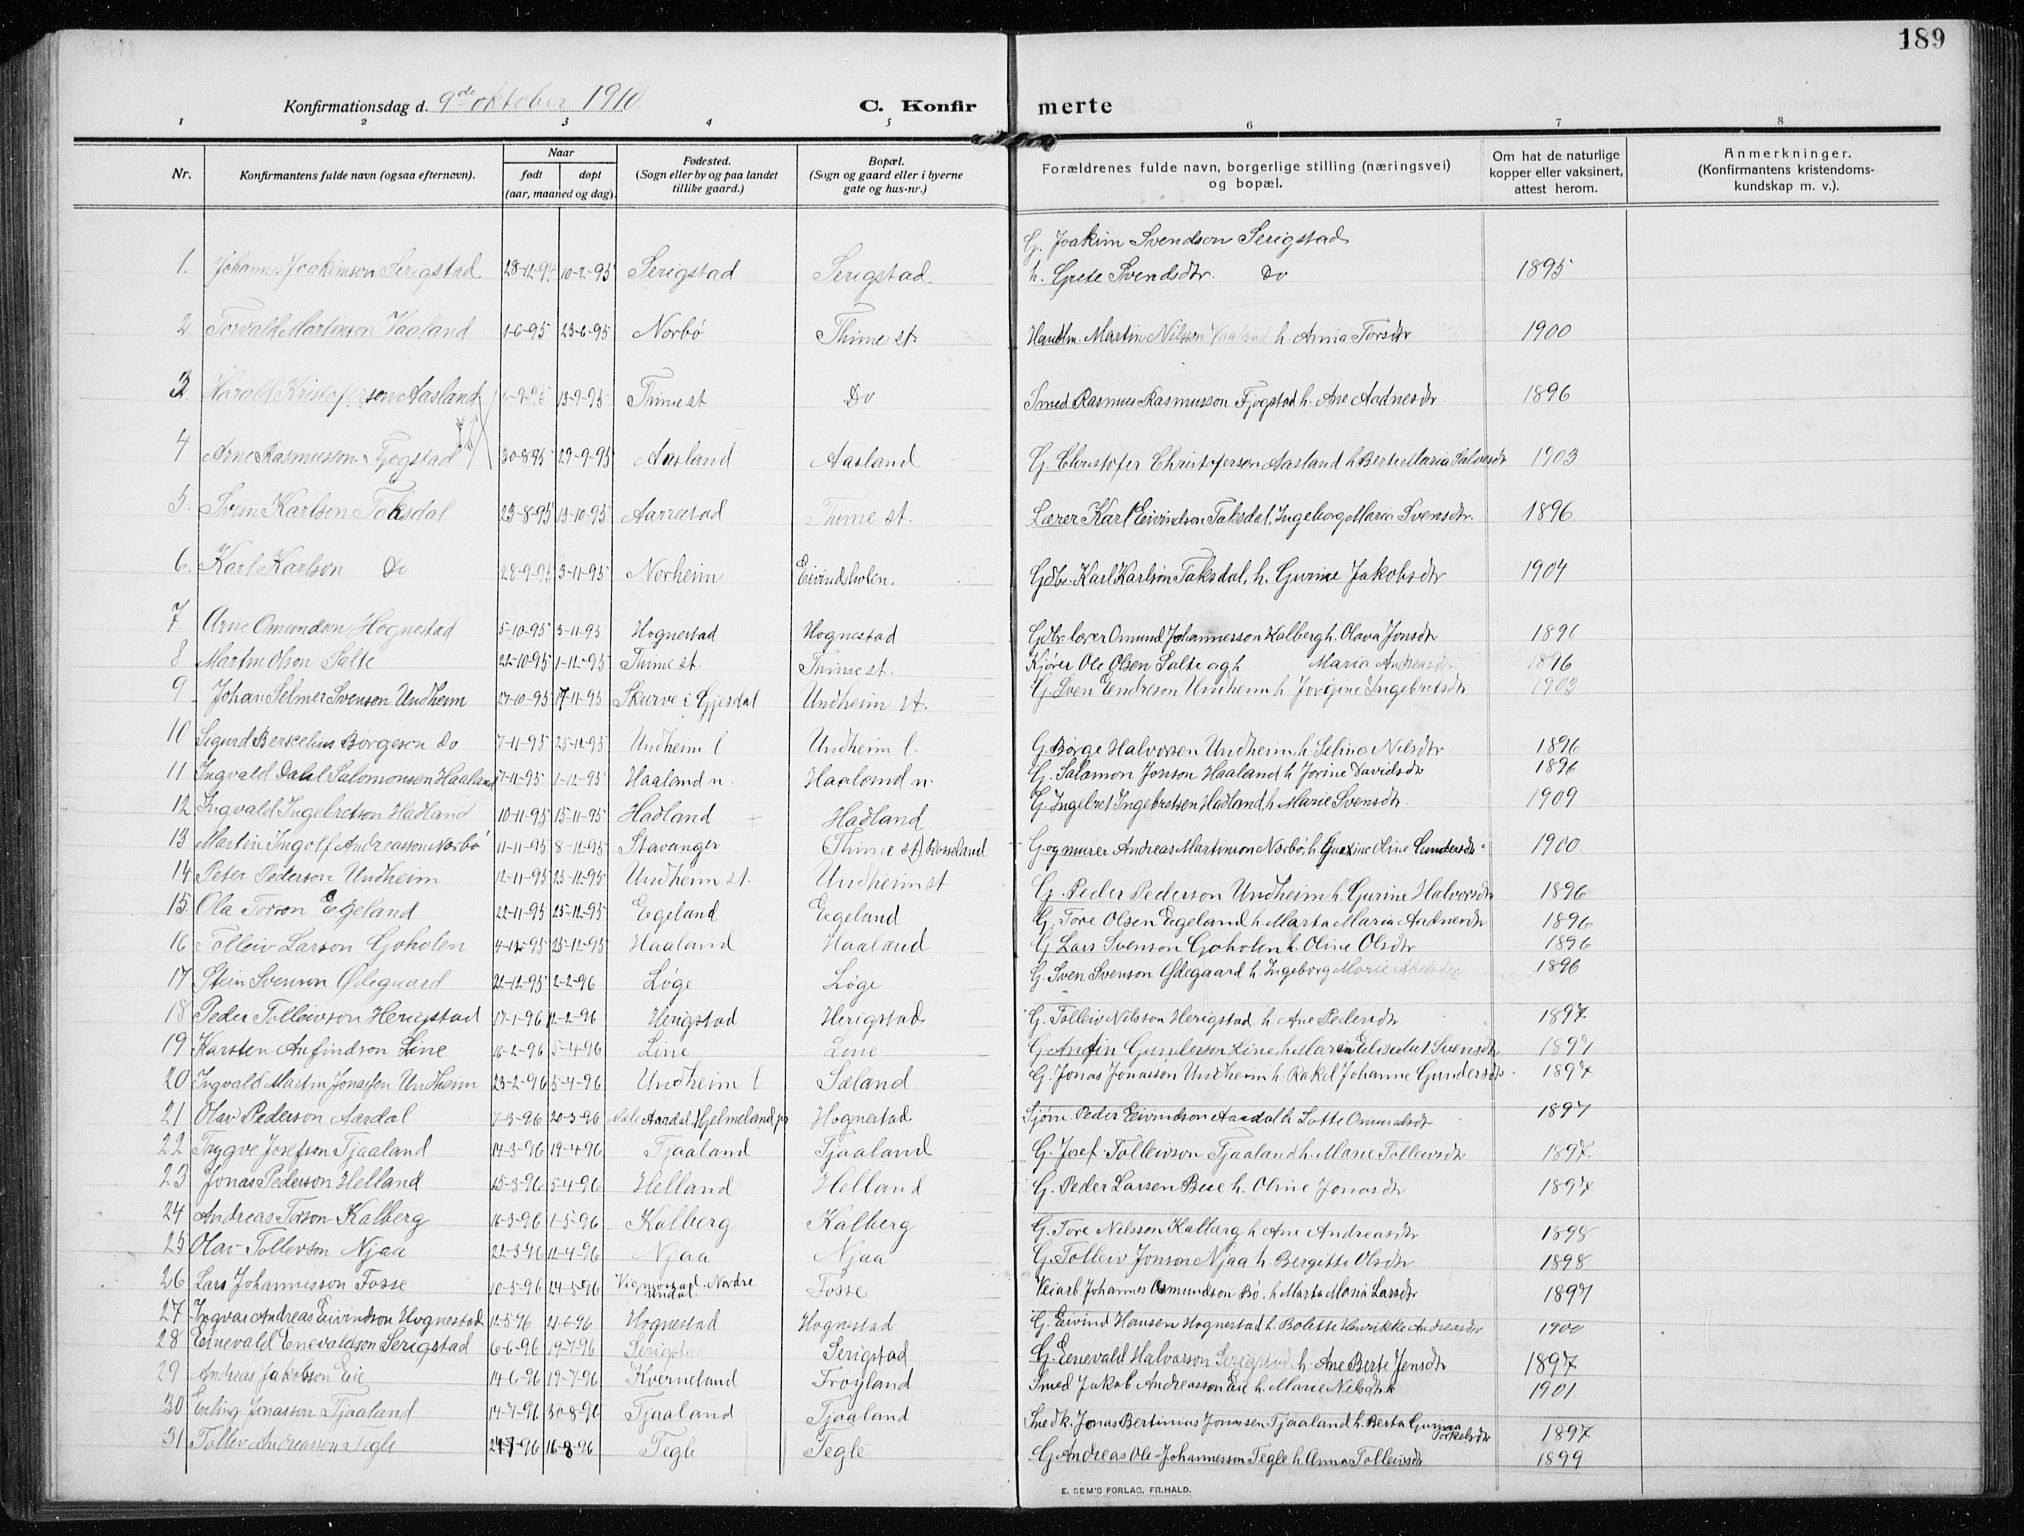 189
Konfirmationsdag d. 9de oktober 1910
C. Konfirmerte
1 2 3 4 5 6 7 8
Nr.
Konfirmantens fulde navn (ogsaa efternavn).
Naar
født døpt
(aar, maaned og dag).
Fødested.
(Sogn eller by og paa landet
tillike gaard.)
Bopæl.
(Sogn og gaard eller i byerne
gate og hus-nr.)
Forældrenes fulde navn, borgerlige stilling (næringsvei)
og bopæl.
Om hat de naturlige
kopper eller vaksinert,
attest herom.
Anmerkninger.
(Konfirmantens kristendoms-
kundskap m. v.).
G. Joakim Svendson Serigstad
1. Johannes Joakimson Serigstad 28-12-94 10-2-95 Serigstad Serigstad h. Grete Svendsdtr. Do 1895
2 Torvald Martinson Vaaland 1-6-95 23-6-95 Norbø Thime st. Handlm. Martin Nilsson Vaaland h. Anna Torsdtr 1900
3 Harald Kristoferson Aasland -9-95 13-9-95 Thime st Do Smed Rasmus Rasmusson Fjogstad h. Ane Aadnesdtr. 1896
4 Arne Rasmusson Fjogstad 30-8-95 29-9-95 Aasland Aasland G. Christofer Christoferson Aasland h Berte Maria Salvesdtr 1903
5. Sven Karlson Taksdal 23-8-95 13-10-95 Aarrestad Thime st. Lærer Karl Eivindson Taksdal, Ingeborg Maria Svensdtr. 1896
6. Karl Karlson Do 28-9-95 3-11-95 Norheim Eivindholen. Gdbr. Karl Karlson Taksdal, h. Gurine Jakobsdtr 1904
7. Arne Omundson Hognestad 5-10-95 3-11-95 Hognestad Hognestad Gdbr lærer Omund Johannesson Kalberg h. Olava Jonsdtr 1896
8 Martin Olson Salte 22-10-95 1-12-95 Thime st. Thime st. Kjører Ole Olsen Salte og h Maria Andreasdtr. 1896
9 Johan Selmer Svenson Undheim 27-10-95 17-11-95 Skurve i Gjesdal Undheim st. G. Sven Eendreson Undheim h. Jorgine Ingebretsdtr 1903
10 Sigurd Berselius Børgeson Do 7-11-95 25-12-95 Undheim l Undheim l. G. Børge Halvorsen Undheim h. Selina Nilsdtr. 1896
11 Ingvald Dahl Salomonsen Haaland 7-11-95 1-12-95 Haaland n. Haaland n. G. Salamon Jonson Haaland h Jorine Davidsdtr 1896
12 Ingvald Ingebretson Hadland 10-11-95 15-11-95 Hadland Hadland G. Ingebret Ingebretsen Hadland h Marie Svensdtr. 1909
13 Martin Ingolf Andreasson Norbø 11-11-95 8-12-95 Stavanger Thime st) Rosseland G. og murer Andreas Martinson Norbø, h. Oline Gundersdtr 1900
14 Peter Pederson Undheim 12-11-95 25-12-95 Undheim st. Undheim st G. Peder Pederson Undheim h. Gurine Halvorsdtr 1896
15 Ola Torson Egeland 22-11-95 25-12-95 Eegeland Eegeland G. Tore Olsen Eegeland h. Marta Maria Aadnesdtr 1896
16 Tolleiv Larson Goholen 4-12-95 25-12-95 Haaland Haaland G. Lars Svenson Goholen h. Oline Olsdtr 1896
17 Stein Svenson Ødegaard 22-12-95 2-2-96 Løge Løge G. Sven Svenson Ødegaard h. Ingeborg Marie Abelsdtr 1896
18 Peder Tolleivson Herigstad 17-1-96 12-2-96 Herigstad Herigstad G. Tolleiv Nilsson Herigstad h. Ane Pedersdtr 1897
19 Karsten Anfindson Line 16-2-96 5-4-96 Line Line G. Anfin Gunderson Line h Maren Elisabet Svensdtr 1897
20 Ingvald Martin Jonassen Undheim 23-2-96 5-4-96 Undheim l Sæland G. Jonas Jonasson Undheim h. Rakel Johanne Gundersdtr. 1897
21 Olav Pederson Aardal 7-3-96 20-3-96 Aardal, Hjelmeland Hognestad Sjøm. Peder Eivindson Aardal h Lotte Omundsdtr 1897
22 Trygve Josefson Tjaaland 14-3-96 19-4-96 Tjaaland Tjaaland G. Josef Tolleivson Tjaaland h. Marie Tolleivsdtr 1897.
23 Jonas Pederson Helland 15-3-96 5-4-96 Helland Helland G. Peder Larsen Bue h. Oline Jonasdtr 1897
24 Andreas Torson Kalberg 16-3-96 1-5-96 Kalberg Kalberg G. Tore Nilsson Kalberg h Ane Andreasdtr 1898
25 Olav Tollevson Njaa 22-3-96 12-4-96 Njaa Njaa G. Tolleiv Jonson Njaa h. Bergitte Olsdtr. 1898
26 Lars Johannesson Fosse 10-5-96 24-5-96 Vigmostad. Nordre Undal Fosse Veiarb Johannes Osmundson Bø. h Marta Maria Larsdtr 1897
27 Ingvar Andreas Eivindson Hognestad 12-5-96 21-6-96 Hognestad Hognestad G. Eivind Hansen Hognestad h Bolette Henrikke Andreasdtr 1900
28 Einevald Enevaldson Serigstad 6-6-96 19-7-96 Serigstad Serigstad G. Eenevald Halvorsson Serigstad h. Ane Berte Jensdtr 1897
29 Andreas Jakobson Eie 14-6-96 19-7-96 Kverneland Frøyland Smed Jakob Andreasson Eie h. Marie Nilsdtr 1901
30 Erling Jonasson Tjaaland 14-7-96 30-8-96 Tjaaland Tjaaland Snedk. Jonas Bertinius Jonassen Tjaaland h. Berta Gurina Torkelsdtr 1897
31 Tollev Andreasson Tegle 24-7-96 16-8-96 Tegle Tegle G Andreas Ole-Johannesson Tegle h Anna Tolleivsdtr 1899
E. SEM'S FORLAG, FR.HALD.